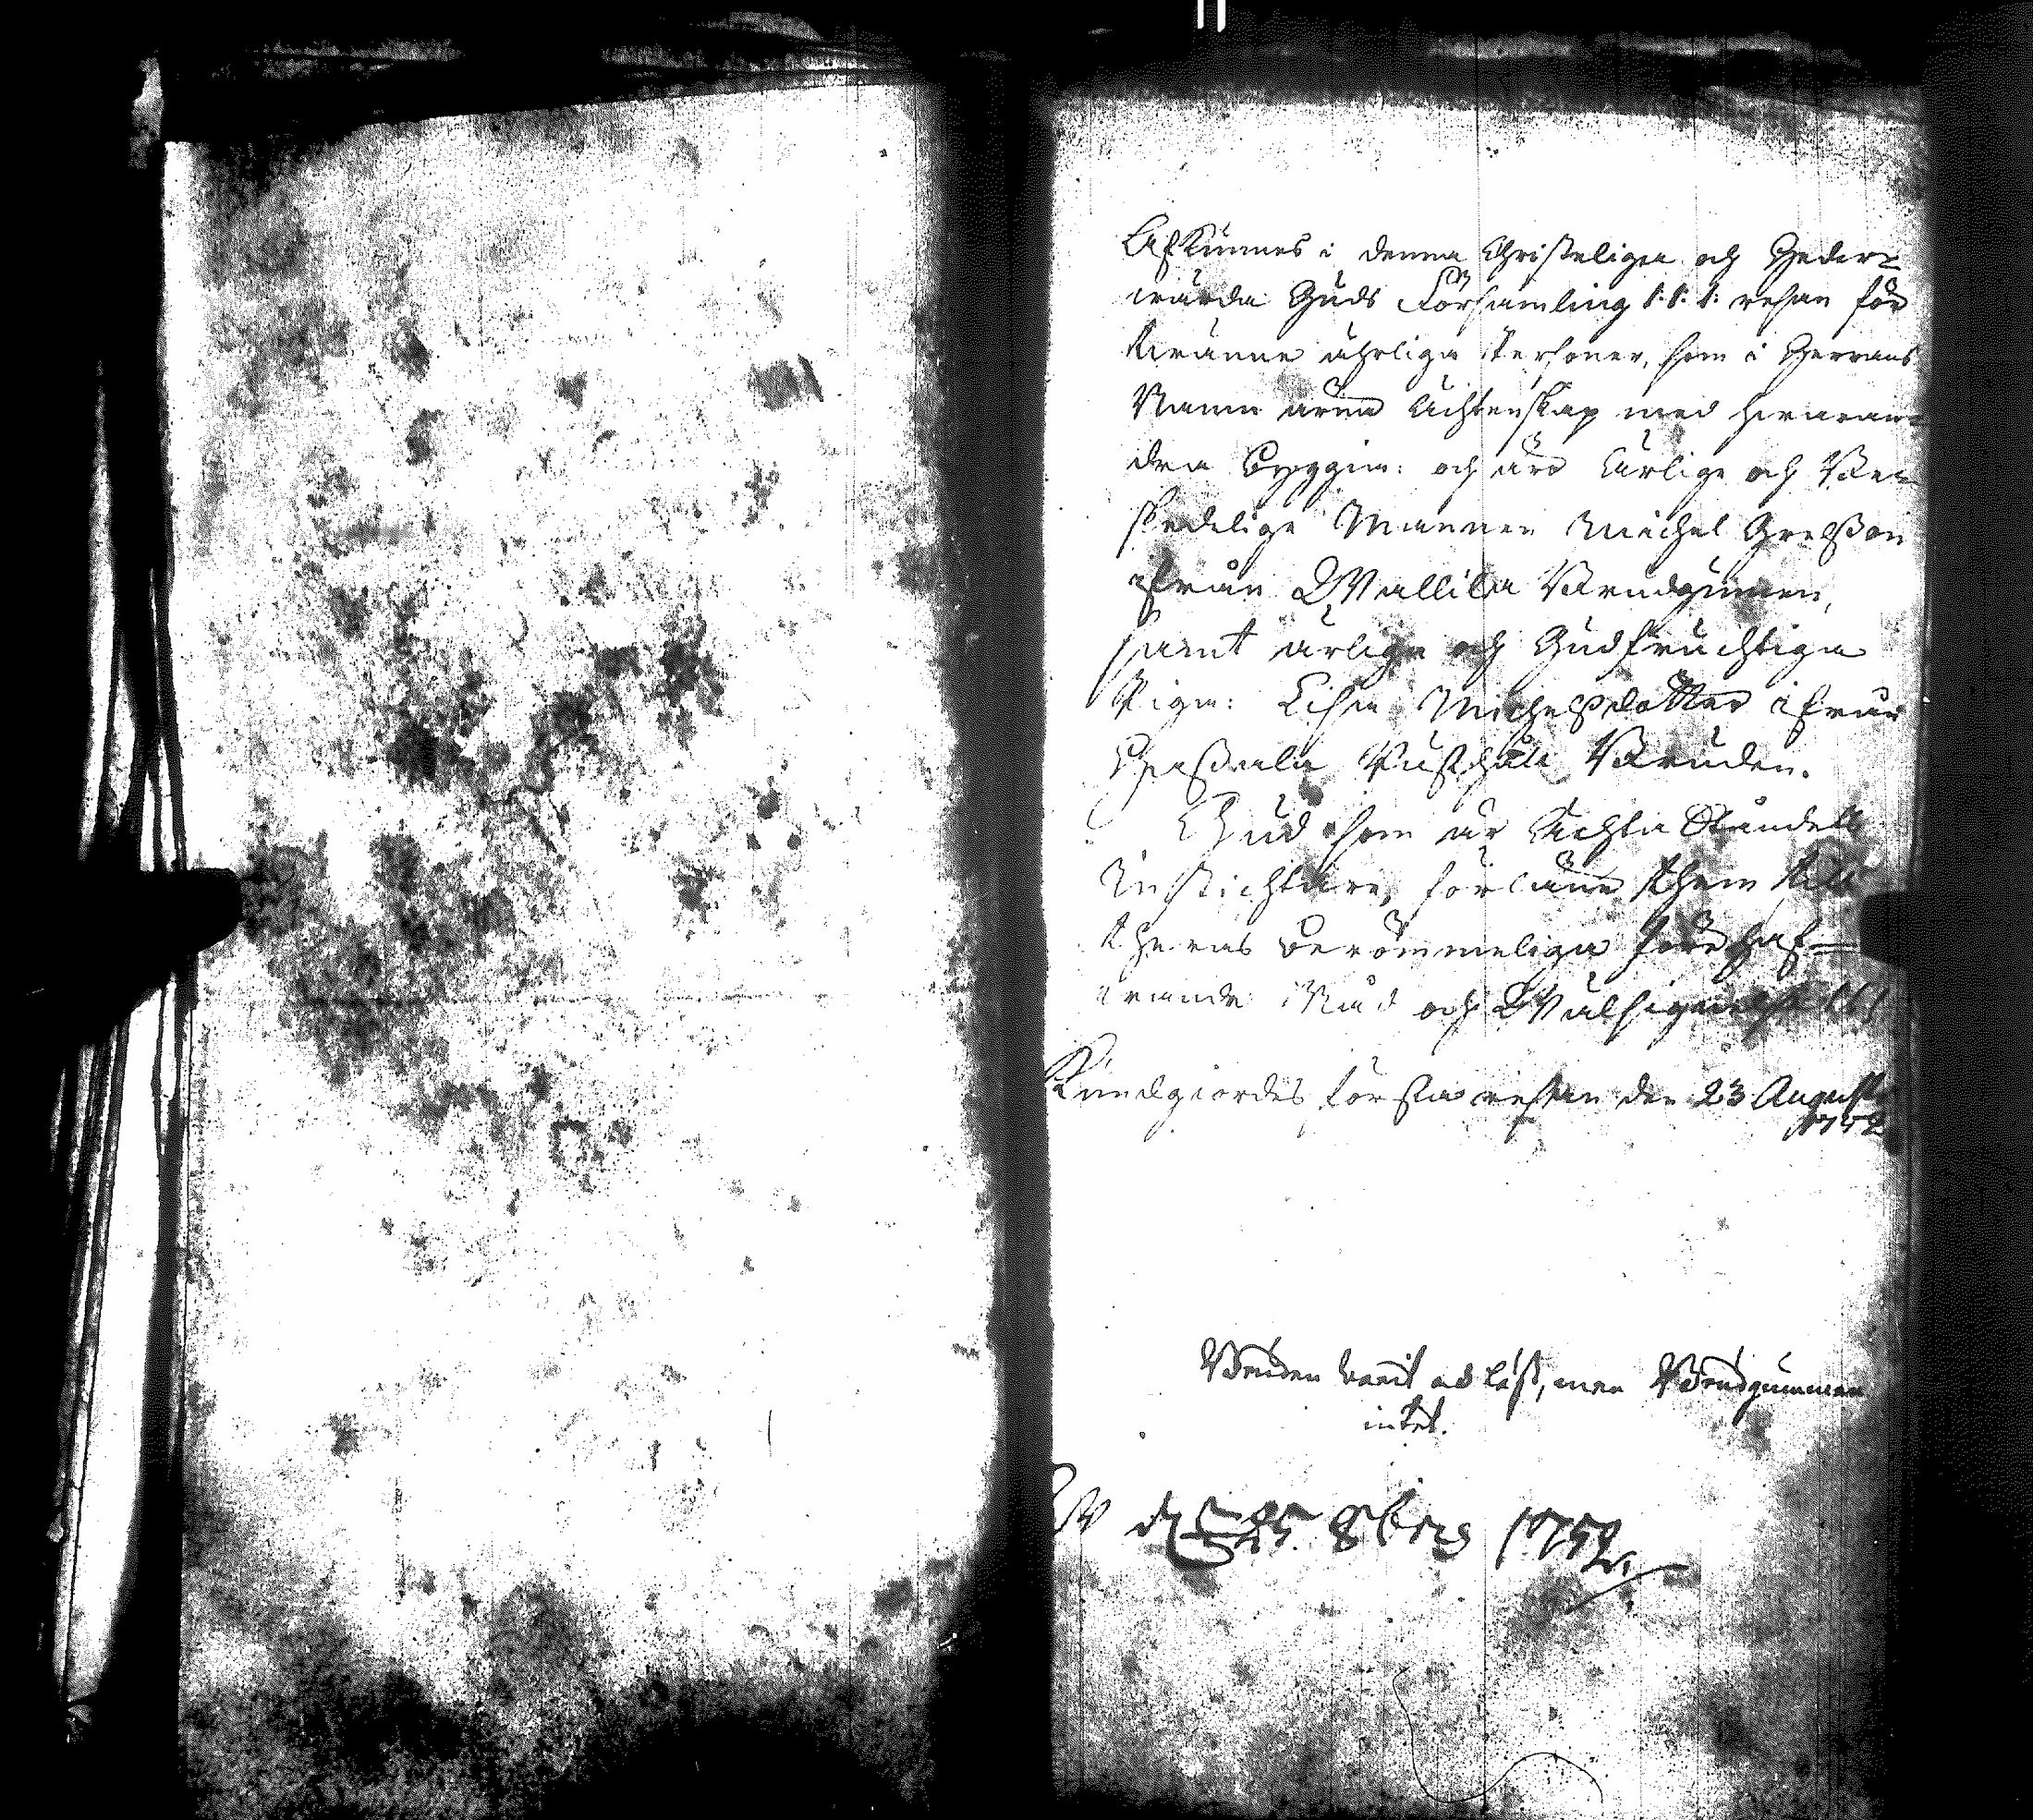 Afkunnes i denna Christeliga och Heder-
wärda Guds Församling 1. 1. 1. resan för
twänne ährliga Personer, som i Herrans
Namn ärna Ächtenskap med hwaran-
dra byggia: och äro Ärlige och Be-
skedelige Mannen Michel Grelsson
ifrån Wallila Brudgummen,
samt ärliga och Gudfruchtiga
Pigan: Lisa Michelsdotter ifrån
Bruden.
Gud som är Ächta Ståndets
Instichtare, förläne them till
theras berömmeliga förehaf-
wande Nåd och Wälsignelse
Kundgiordes första resan den 23 Augusti
1752
Bruden warit ad läst, men Brudgummen
intet.
d. 25. 8bris 1752.